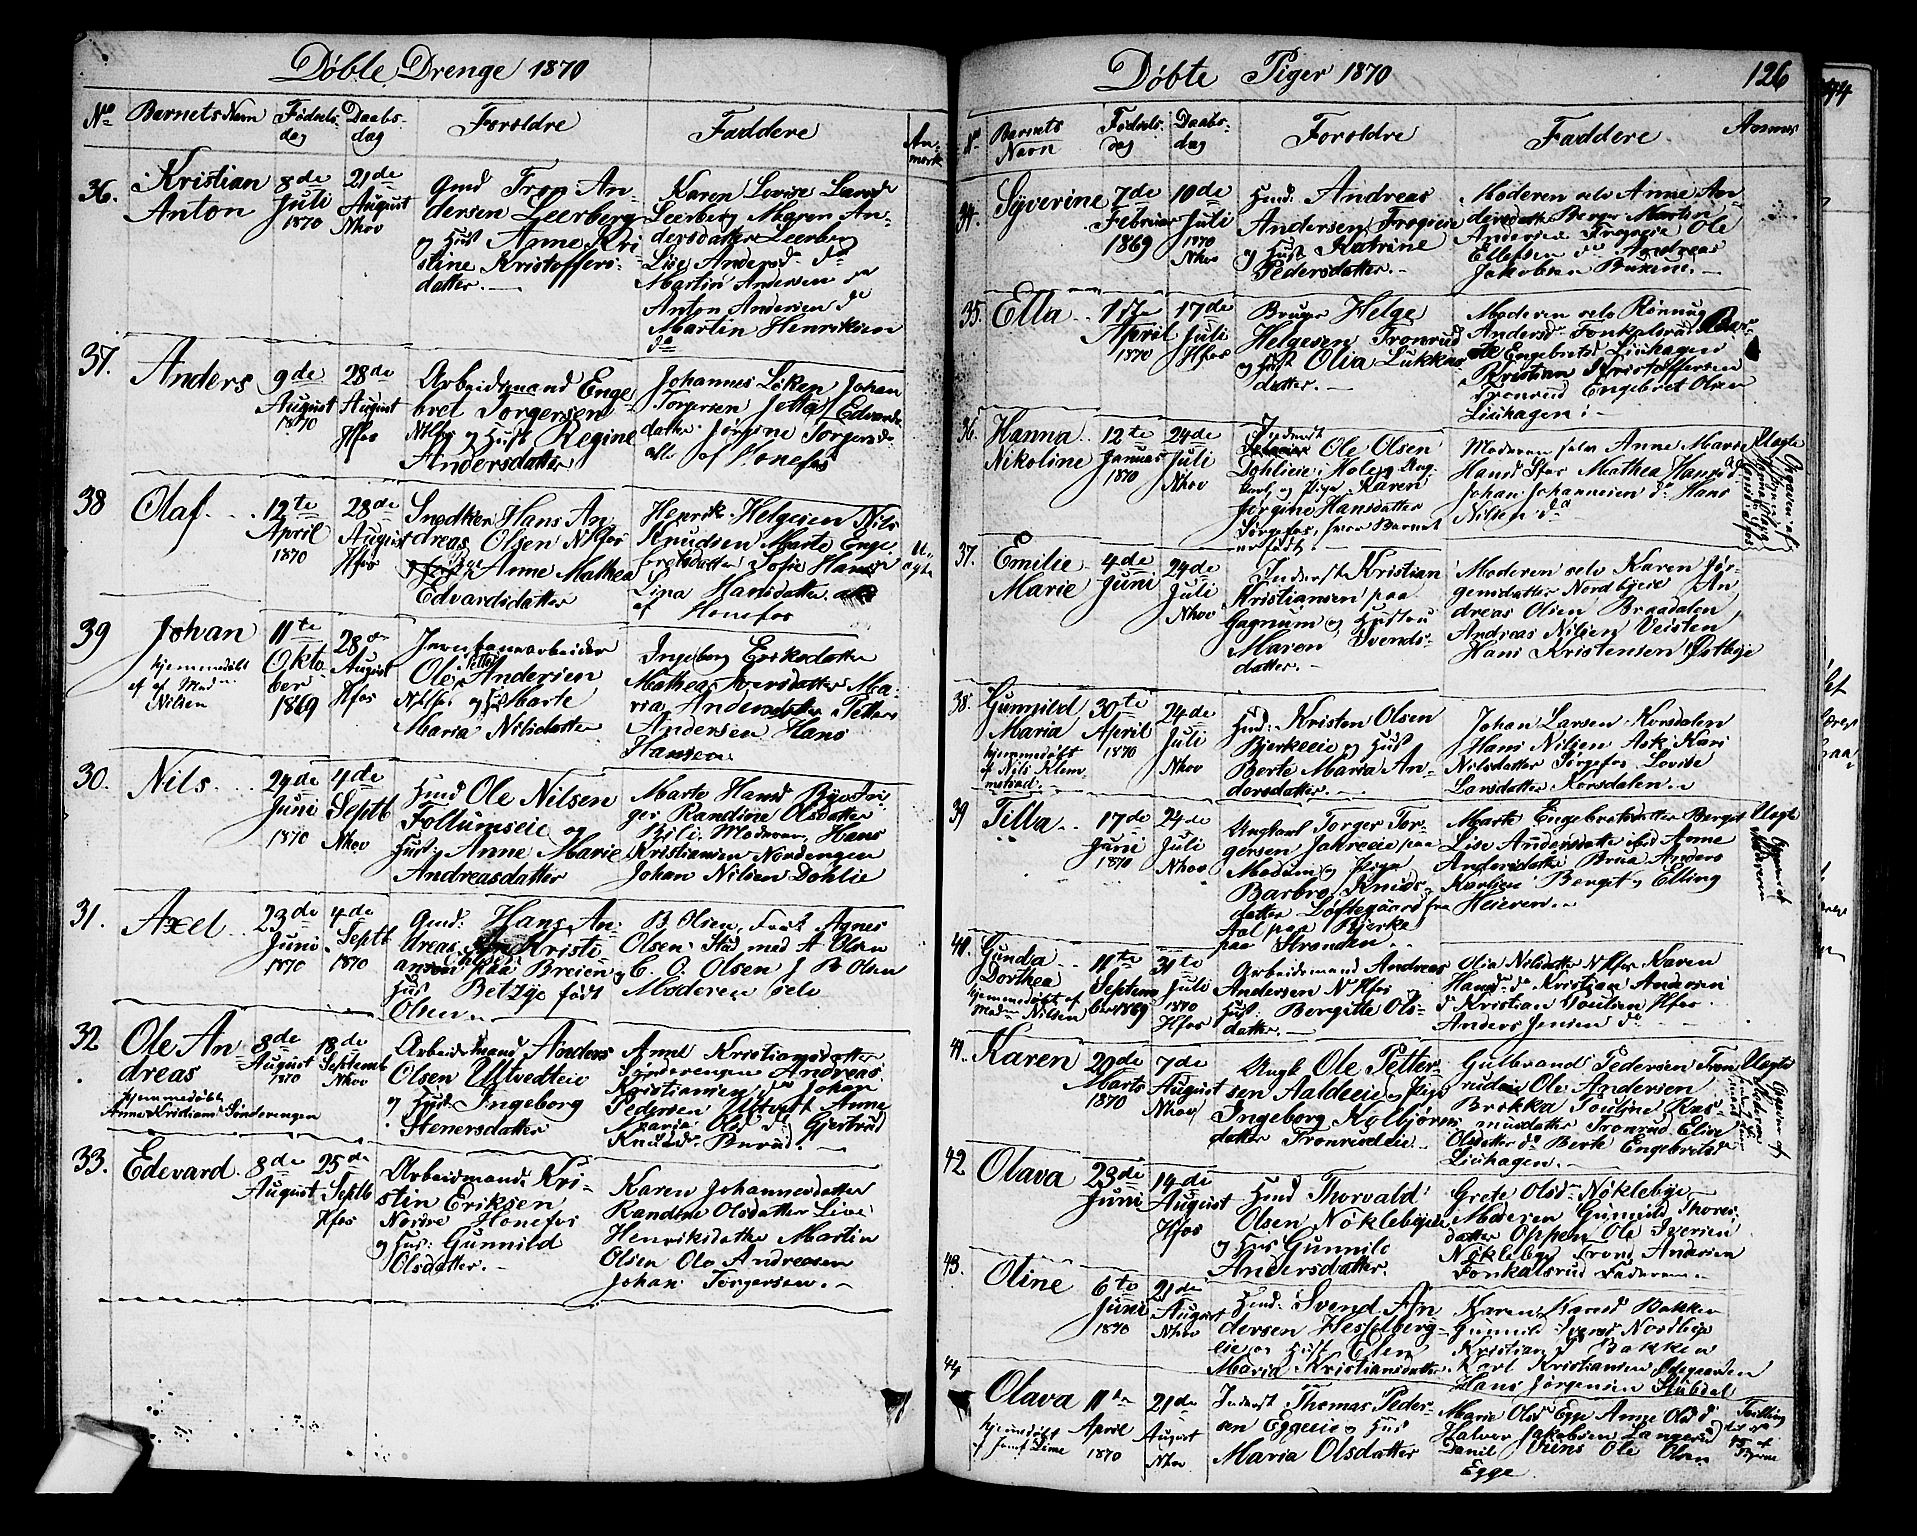 Døbte Drenge 1870
No Barnets Navn Fødsels-dag Daabs-dag Forældre Faddere Anmerk
36. Kristian Anton
8de Juli 1870
21de August Nhov
Gmd Tron An-
dersen Leerberg
og Hust Anne Kri
stine Kristoffers-
datter.
Karen Lovise Larsd
Leerberg Maren An-
dersdatter Leerberg
Lise Andersd do
Martin Andersen do
Anton Andersen do
Martin Henriksen
do
37. Anders
9de August 1870
28de August Hfos
Arbeidsmand Enge
bret Torgersen
og Hust Regine
Andersdatter
Johannes Løken Johan
Torgersen Jetta Edvards
datter Jørgine Torgersd
alle af Hønefos
38 Olaf
12te April 1870
28de August Hfos
Snedker Hans An
dreas Olsen N Hfos
Anne Mathea
Edvardsdatter
Henrik Helgesen Nils
Knudsen Marte Enge
bretsdatter Sofie Hansd
Lina Hansdatter
af Hønefos
Uægte
39 Johan
hjemmedøbt
af Madm
Nilsen
11te Oktober 1869
28de August Hfos
Ole Petter Andersen
N Hfos og Hust Marte
Maria Nilsdatter
Ingeborg Eriksdatter
Mathea Iversdatter Ma-
ria Andersdatter Petter
Andersen Hans
Hansen
30. Nils
29de Juni 1870
4de Septb Nhov
Husmd Ole Nilsen
Follumseie og
Hust: Anne Marie
Andreasdatter
Marte Hansd Bye Pi
ger Randine Olsdatter
Moderen Hans
Kristiansen Nordengen
Johan Nilsen Dohlie
31. Axel
23de Juni 1870
4de Septb 1870
Gmd: Hans An-
dreas Kristi-
ansen paa Breien og
Hust Betzye født
Olsen
B Olsen, Frøk Agnes
Olsen Stad med A Olsen
C. O. Olsen J B Olsen
Moderen selv
32 Ole An
dreas
hjemmedøbt
Anne Kristians Sønderengen
8de August 1870
18de Septemb Nhov
Arbeidsmand Anders
Olsen Utvedteie
og Hust: Ingeborg
Stenersdatter
Anne Kristiansdatter
Sønderengen Andreas
Kristiansen do Johan
Pedersen Utvedt Anne
Maria Olsd do Gjertrud
Knudsd Burud.
33. Edevard
8de August
25de Septb Hfos
Arbeidmand: Kri-
stin Eriksen
Nørre Hønefos
og Hus: Gunnild
Olsdatter.
Karen Johannesdatter
Randine Olsdatter Live
Henriksdatter Martin
Olsen Ole Andreasen
Johan Torgersen.
Døbte Piger 1870
126
No Barnets Navn Fødsels-dag Daabs-dag Forældre Faddere Anmer
34. Syverine
7de Februar 1869
10de Juli 1870 Nhov
Husmd: Andreas
Andersen Frogseie
og Hust Katrine
Pedersdatter.
Moderen selv Anne An-
dersdatter Berger Martin
Andersen Frogseie Ole
Ellefsen do Andreas
Jakobsen Buxene.
35. Ella
17de April 1870
17de Juli Hfos
Bruger Helge
Helgesen Tronrud
og Hust Olia Lukkas
datter.
Moderen selv Rønnug
Andersd Fonkalsrud
Engebretsd Liuhagen
Kristian Kristoffersen
Tronrud Engebret Olsen
Liuhagen.
36. Hanna
Nikoline
12te Januar 1870
24de Juli Nhov
Inderst
Ole Olsen
Dohlieie, Hole og Ung
karl, og Pige Karen
Jørgine Hansdatter
Jørgefos, hvor Barnet
er født.
Moderen selv Anne Marie
Hansd Fos Mathea Hansd do
Johan Johannesen do Hans
Nilsen do
Uægte
37. Emilie
Marie
4de Juni
24de Juli Nhov
Inderst Kristian
Kristiansen paa
Gagnum og Hustru
Maren Svends-
datter.
Moderen selv Karen Jør-
gensdatter Nordbyeie An
dreas Olsen Braadalen
Andreas Nilsen Veisten
Hans Kristensen Østbye
38. Gunnild
Maria
hjemmedøbt
af Nils Klem
metsrud.
30te April 1870
24de Juli Nhov
Husmd: Kristen Olsen
Bjerkeeie og Hust
Berte Maria An-
dersdatter.
Johan Larsen Korsdalen
Hans Nilsen Ask Kari
Nilsdatter Jørgefos Lovise
Larsdatter Korsdalen.
39 Tilla
17de Juni 1870
24de Juli Nhov
Ungkarl Torger Tor-
gersen Jakreeie paa
Modum og Pige
Barbro Knuds-
datter Løftegaard fra
Aal paa Bjerke
paa Stranden.
Marte Engebretsdatter Berget
Lise Andersdatter ibid Anne
Andersdatter Bruia Anders
Karlsen Berget og Elling
Heieren.
Uægte
Opgivet af
Moderen
40. Gunda
Dorthea
hjemmedøbt af
Madm Nilsen
11te September 1869
31te Juli 1870 Hfos
Arbeidsmand Andreas
Andersen N Hfos og
Hust: Bergitte Ols-
datter.
Olia Nilsdatter N Hfos Karen
Hansd: do Kristian Andersen
do Kristian Poulsen Hfos.
Anders Jensen do
41. Karen
29de Marts 1870
7de August Nhov
Ungk Ole Petter-
sen Aaldeeie og Pige
Ingeborg Kolbjørns
datter Tronrudeie.
Gulbrand Pedersen Tron
rudeie Ole Andersen
Brekka Pouline Ras-
musdatter Tronrud Elive
Olsdatter do Berte Engebretsd
Liuhagen.
Uægte
42 Olava
23de Juni
14de August Hfos
Husmd Thorvald
Olsen Nøklebyeie
og Hus Gunnild
Andersdatter.
Grete Olsd Nøklebye
Moderen Gunnild Thores
datter Oppen Ole Iversen
Nøklebye Trond Andersen
Fonkalsrud Faderen.
43. Oline
6te Juni 1870
21de August Nhov
Husmd: Svend An
dersen Hesselberg-
eie og Hust Elen
Maria Kristiansdatter
Karen Karisd Bakken
Gunnild Iversd Nordbye
Kristian do Bakken
Karl Kristiansen Ødegaarden
Hans Jørgensen Stubdal
44 Olava
hjemmedøbt
af Jomf Lime
11te April 1870
21de August Nhov
Inderst Thomas Peder-
sen Eggeeie og Hust
Maria Olsdatter
Marie Olsd Egge Anne Olsd do
Halvor Jakobsen Langerud
Daniel Jens Ole Olsen
Egge
Tvilling